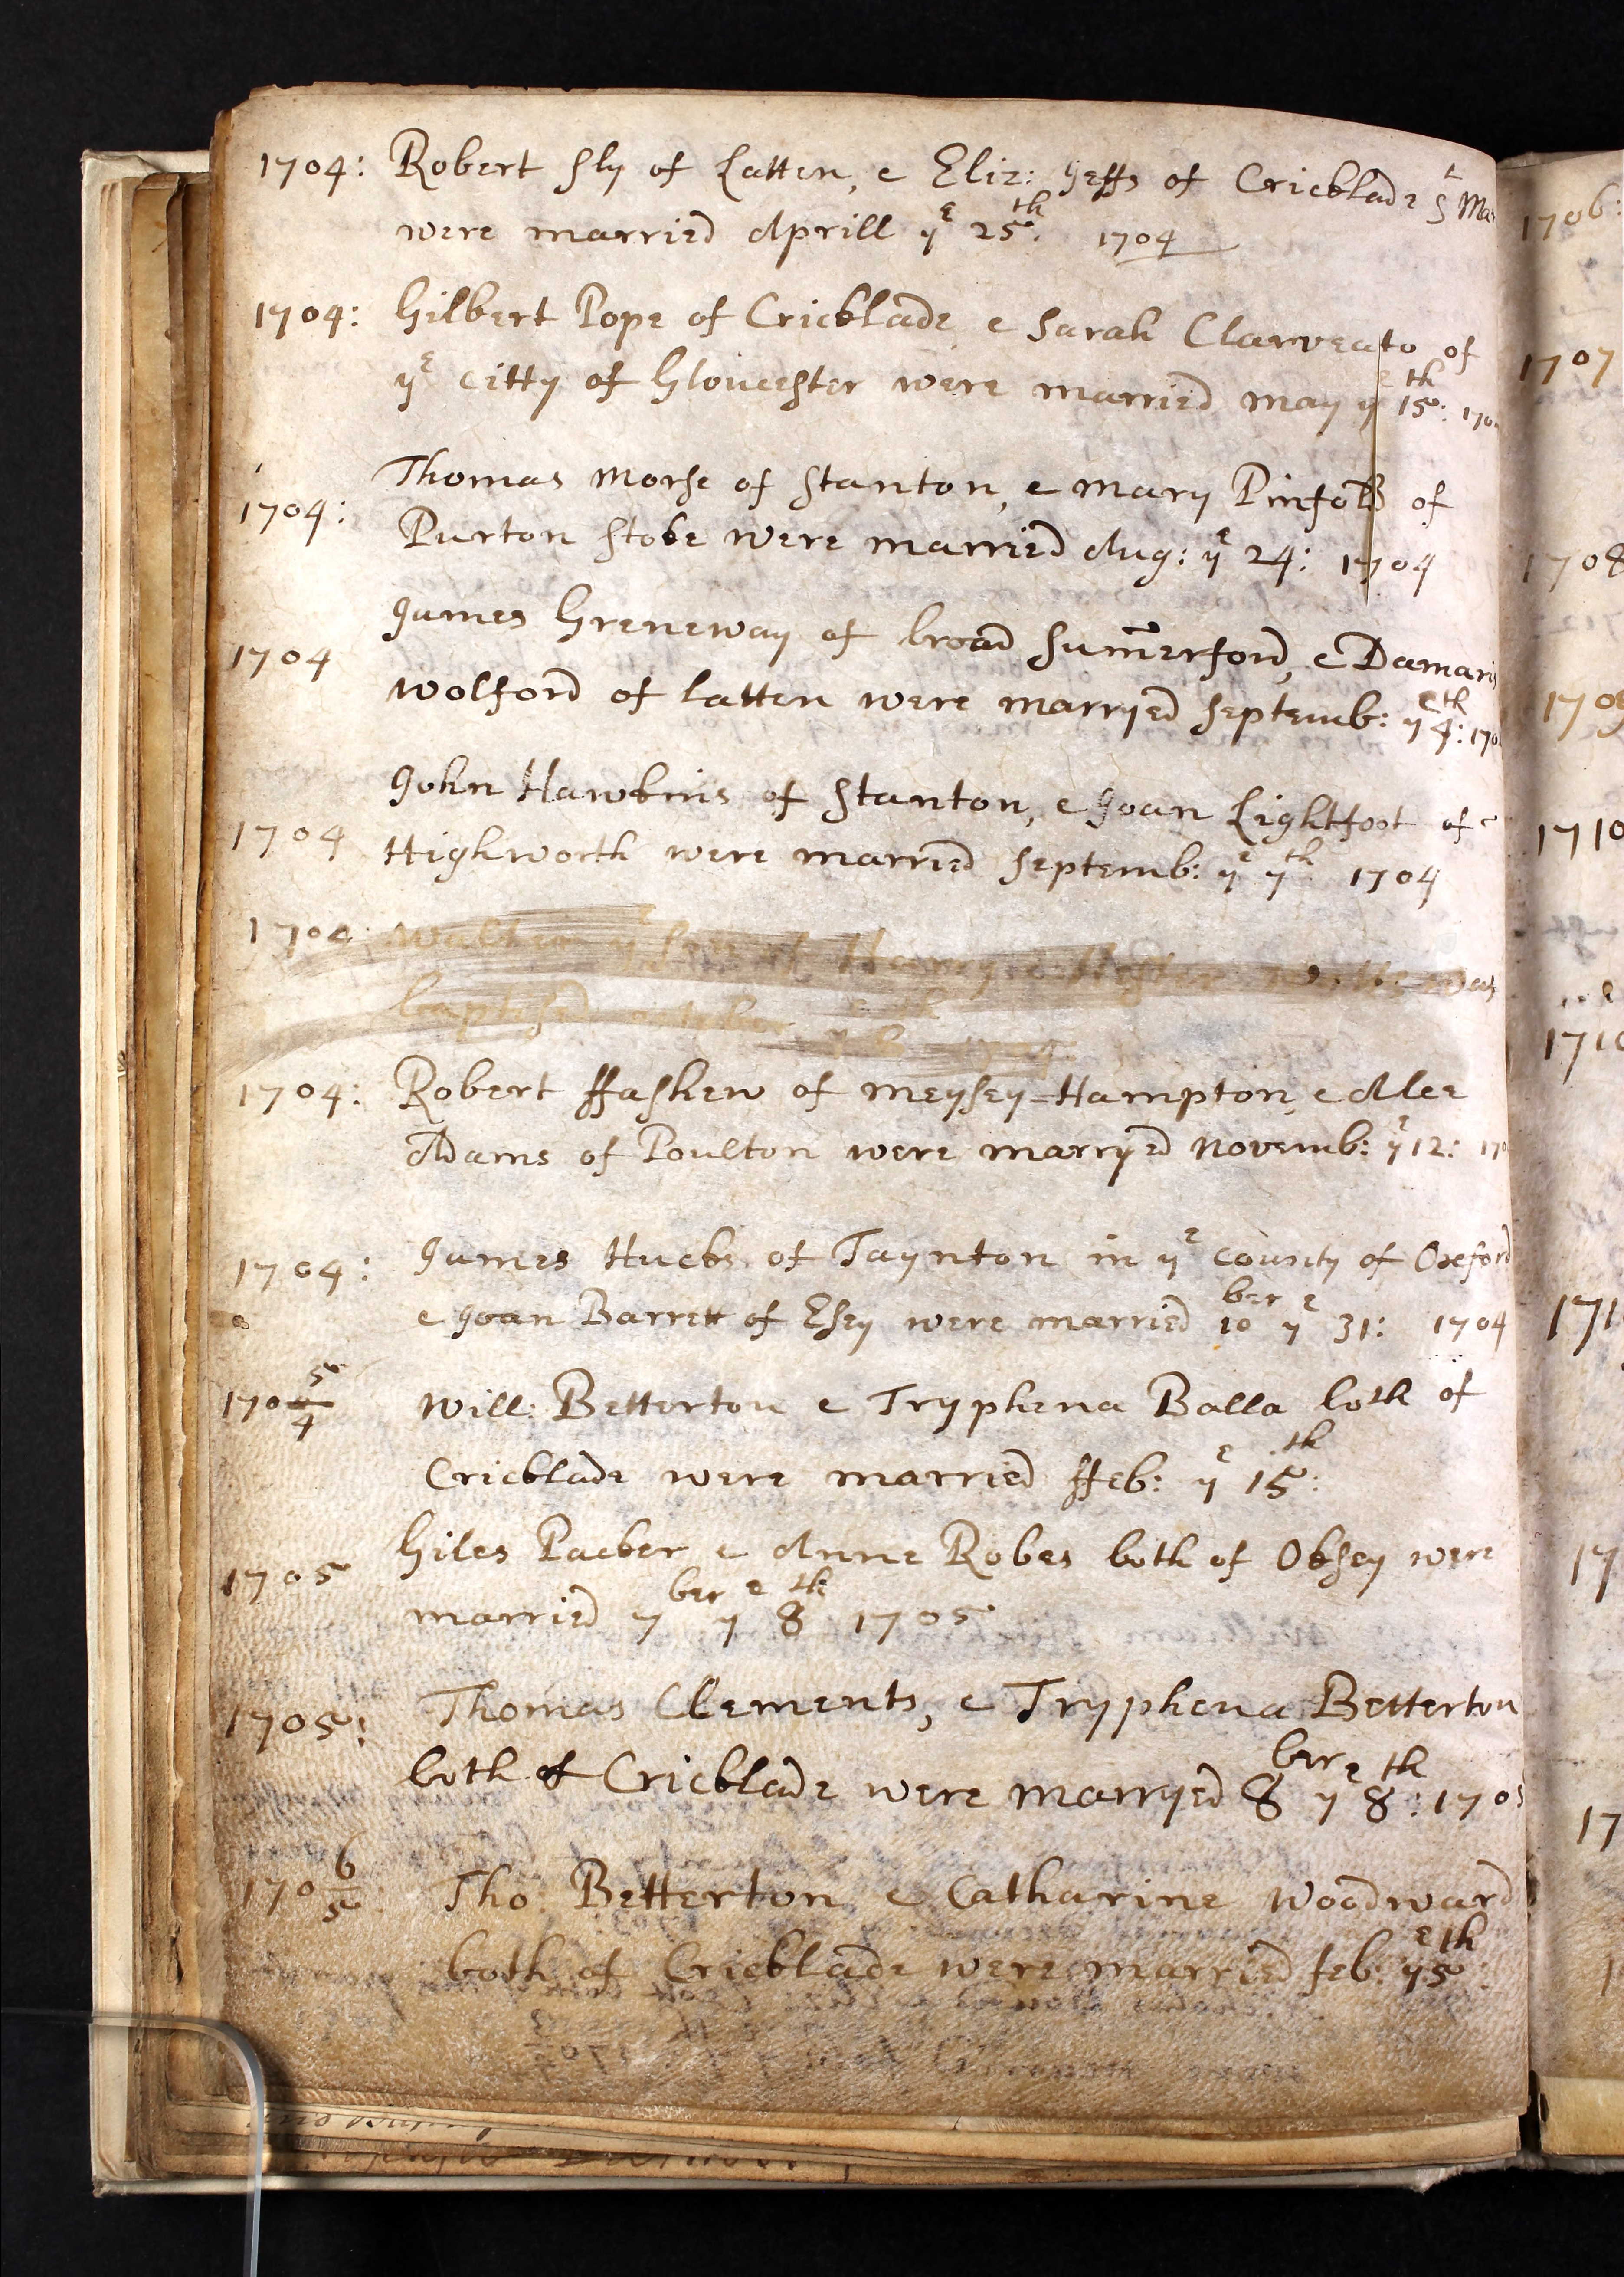 1704: Robert Sly of Latten, e Eliz: Jeffs of Cricklade St Mar
were married Aprill ye 25th: 1704
1704: Gilbert Pope of Cricklade e Sarah Clarveato of
ye Citty of Gloucester were married may ye 15th: 170
1704: Thomas Morse of Stanton, e Mary Pinfold of
Purton Stoke were married Aug: ye 24: 1704
1704 James Greneway of broad Sum̄erford, e Damaris
Wolford of latten were marryed Septemb: ye 4th: 170
1704 John Hawkins of Stanton, e Joan Lightfoot of
Highworth were married Septemb: ye 7th 1704
1704 ye was
baptised october ye
1704: Robert ffashew of Meysey=Hampton, e Alce
Adams of Poulton were marryed Novemb: ye 12: 170
1704: James Hucks of Taynton in ye County of Oxford
e Joan Barrett of Esey were married 10ber ye 31: 1704
170 5/4 Will: Betterton e Tryphena Balla both of
Cricklade were married ffeb: ye 15th:
1705 Giles Packer e Anne Robes both of Oksey were
married 7ber ye 8th 1705
1705: Thomas Clements, e Tryphena Betterton
both of Cricklade were marryed 8ber ye 8th: 1705
170 6/5 Tho: Betterton e Catharine Woodward
both of Cricklade were married feb: ye 5th:
1706:
1707
1708
170
1710
1710
171
17
17